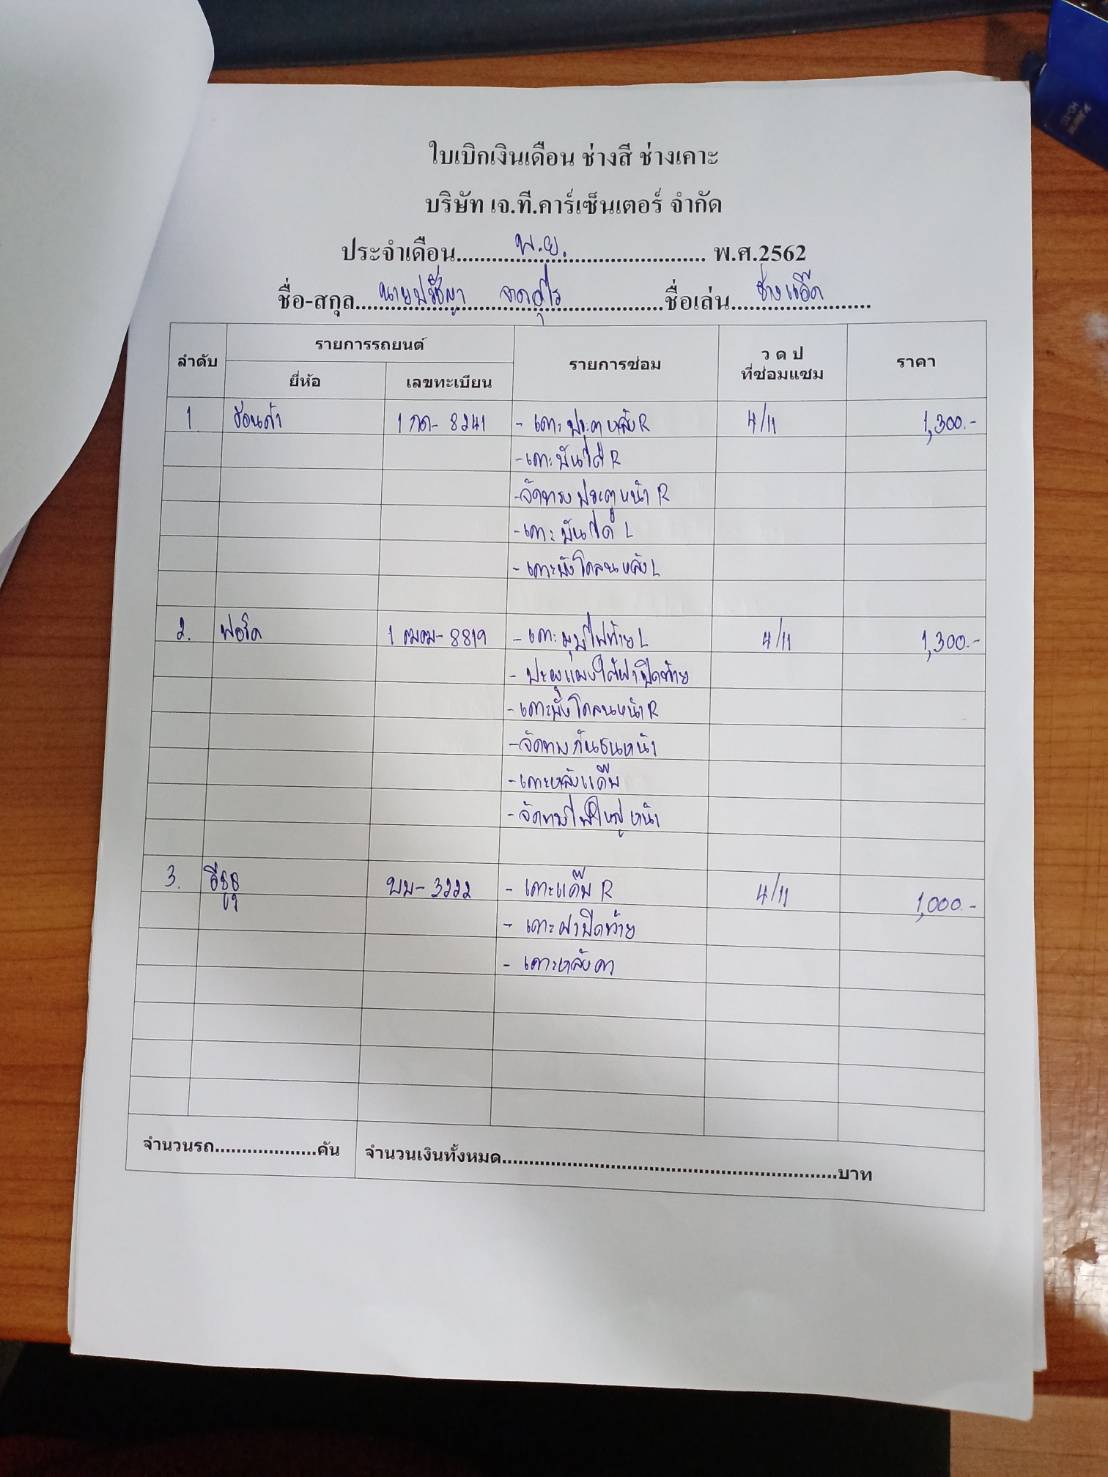 ใบเบิกเงินเดือน ช่างสี ช่างเคาะ
บริษัท เจ.ที.คาร์เซ็นเตอร์ จำกัด
ประจำเดือน พ.ย. พ.ศ.2562
ชื่อ-สกุล นายปรัชญา ชื่อเล่น ช่างแอ๊ด
ลำดับ รายการรถยนต์ รายการซ่อม ว ด ป ที่ซ่อมแซม ราคา
ยี่ห้อ เลขทะเบียน
1 ฮอนด้า 1 กด- 8241 - เคาะประตูหลัง R 4/11 1,300.-
- เคาะบันได R
- จัดทรงประตูหน้า R
- เคาะบันได L
- เคาะบังโคลนหลัง L
2. ฟอร์ด 1 ฒฒ- 8819 - เคาะมุมไฟท้าย L 4/11 1,300.-
- ปะผุแผงใต้ฝาปิดท้าย
- เคาะบังโคลนหน้า R
- จัดทรงกันชนหน้า
- เคาะหลังแค๊ป
- จัดทรงไฟใหญ่หน้า
3. อีซูซุ บม- 3222 - เคาะแค๊ป R 4/11 1,000.-
- เคาะฝาปิดท้าย
- เคาะหลังคา
จำนวนรถ คัน จำนวนเงินทั้งหมด บาท